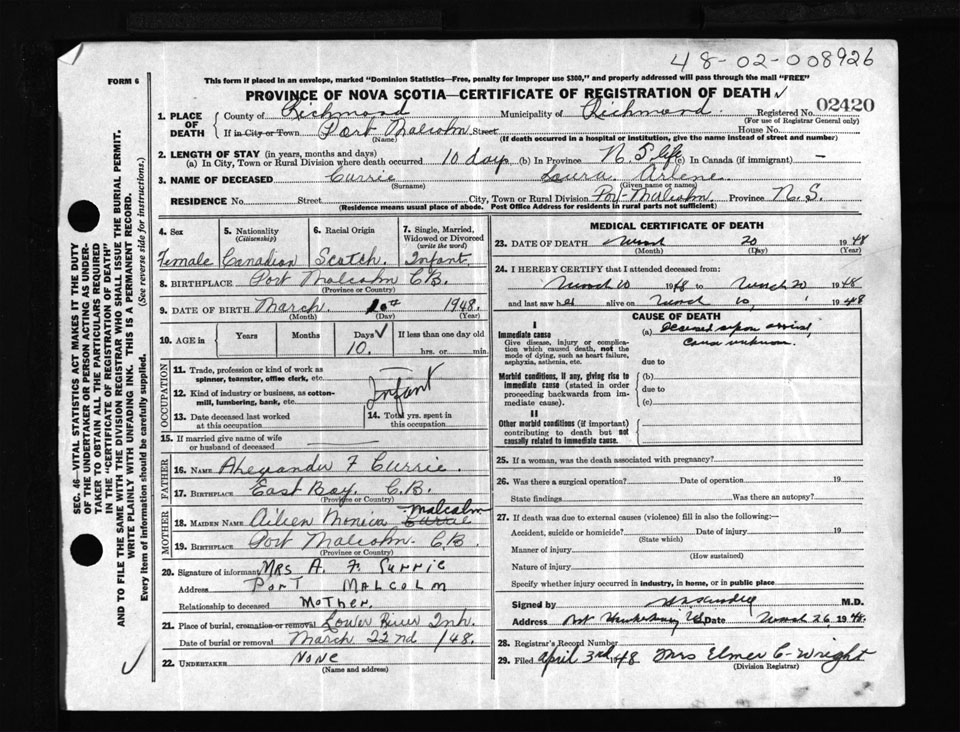 48-02-008926
FORM 6
This form if placed in an envelope, marked "Dominion Statistics—Free, penalty for improper use $300," and properly addressed will pass through the mail "FREE"
PROVINCE OF NOVA SCOTIA—CERTIFICATE OF REGISTRATION OF DEATH
1. PLACE OF DEATH
County of Richmond Municipality of Richmond Registered No. 02420
(For use of Registrar General only)
If in City or Town Port Malcolm Street House No.
(Name) (If death occurred in a hospital or institution, give the name instead of street and number)
2. LENGTH OF STAY (in years, months and days)
(a) In City, Town or Rural Division where death occurred 10 days (b) in Province N.S. life (c) In Canada (if immigrant) —
3. NAME OF DECEASED Currie Laura Arlene
(Surname) (Given name or names)
RESIDENCE No. Street City, Town or Rural Division Port Malcolm Province N.S.
(Residence means usual place of abode. Post Office Address for residents in rural parts not sufficient)
4. Sex
Female
5. Nationality
(Citizenship)
Canadian
6. Racial Origin
Scotch
7. Single, Married, Widowed or Divorced
(write the word)
Infant
8. BIRTHPLACE Port Malcolm C.B.
(Province or Country)
9. DATE OF BIRTH March 10th 1948.
(Month) (Day) (Year)
10. AGE in
Years Months Days If less than one day old
10. hrs. or min.
OCCUPATION
11. Trade, profession or kind of work as
spinner, teamster, office clerk, etc.
12. Kind of industry or business, as cotton-
mill, lumbering, bank, etc.
Infant
13. Date deceased last worked
at this occupation
14. Total yrs. spent in
this occupation
15. If married give name of wife
or husband of deceased
FATHER
16. NAME Alexander F Currie.
17. BIRTHPLACE East Bay, C.B.
(Province or Country)
MOTHER
18. MAIDEN NAME Aileen Monica Currie Malcolm
19. BIRTHPLACE Port Malcolm. C.B.
(Province or Country)
20. Signature of informant MRS A. F. CURRIE
Address PORT MALCOLM
Relationship to deceased MOTHER.
21. Place of burial, cremation or removal Lower River Inh.
Date of burial or removal March 22nd /48.
22. UNDERTAKER None
(Name and address)
MEDICAL CERTIFICATE OF DEATH
23. DATE OF DEATH March 20 1948
(Month) (Day) (Year)
24. I HEREBY CERTIFY that I attended deceased from:
March 10 1948 to March 20 1948
and last saw her alive on March 10, 1948
CAUSE OF DEATH
I
Immediate cause
Give disease, injury or complication which caused death, not the mode of dying, such as heart failure, asphyxia, asthenia, etc.
(a) Deceased upon arrival,
Cause unknown.
due to
Morbid conditions, if any, giving rise to immediate cause (stated in order proceeding backwards from immediate cause).
(b)
due to
(c)
II
Other morbid conditions (if important) contributing to death but not causally related to immediate cause.
25. If a woman, was the death associated with pregnancy?
26. Was there a surgical operation? Date of operation 19
State findings Was there an autopsy?
27. If death was due to external causes (violence) fill in also the following:—
Accident, suicide or homicide? Date of injury 19
(State which)
Manner of injury
(How sustained)
Nature of injury
Specify whether injury occurred in industry, in home, or in public place
Signed by M.D.
Address Port Hawkesbury N.S. Date March 26, 1948.
28. Registrar's Record Number
29. Filed April 3rd 1948 Mrs Elmer C. Wright
(Division Registrar)
SEC. 46—VITAL STATISTICS ACT MAKES IT THE DUTY
OF THE UNDERTAKER OR PERSON ACTING AS UNDER-
TAKER TO OBTAIN ALL THE PARTICULARS REQUIRED
IN THE "CERTIFICATE OF REGISTRATION OF DEATH"
AND TO FILE THE SAME WITH THE DIVISION REGISTRAR WHO SHALL ISSUE THE BURIAL PERMIT.
WRITE PLAINLY WITH UNFADING INK. THIS IS A PERMANENT RECORD.
Every item of information should be carefully supplied. (See reverse side for instructions.)